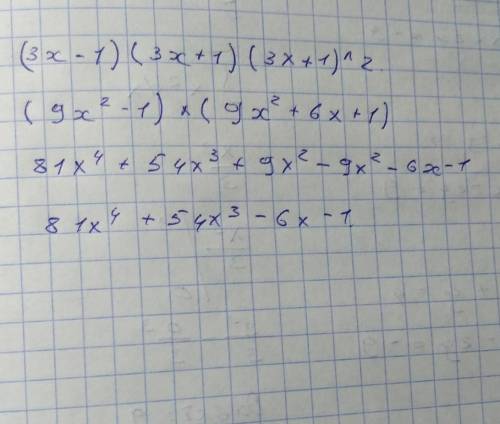 (3x - 1) (3x + 1) (3x + 1)^2
(9x² - 1) × (9x² + 6x + 1)
81x⁴ + 54x³ + 9x² - 9x² - 6x - 1
81x⁴ + 54x³ - 6x - 1